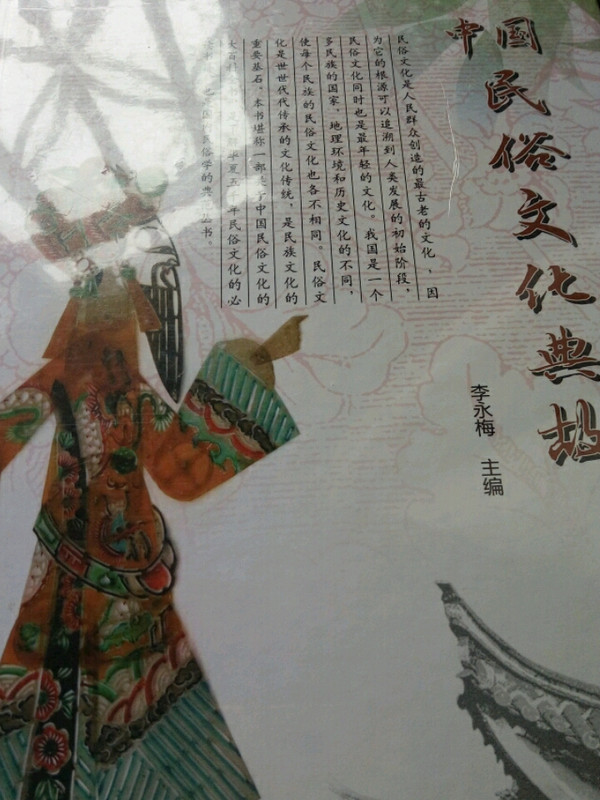 中国
民俗文化典故
李永梅 主编
民俗文化是人民群众创造的最古老的文化，因
为它的根源可以追溯到人类发展的初始阶段。
民俗文化同时也是最年轻的文化。我国是一个
多民族的国家，地理环境和历史文化的不同，
使每个民族的民俗文化也各不相同。民俗文
化是世世代代传承的文化传统，是民族文化的
重要基石。本书堪称一部关于中国民俗文化的
华夏五千年民俗文化的必
民俗学的典范丛书。